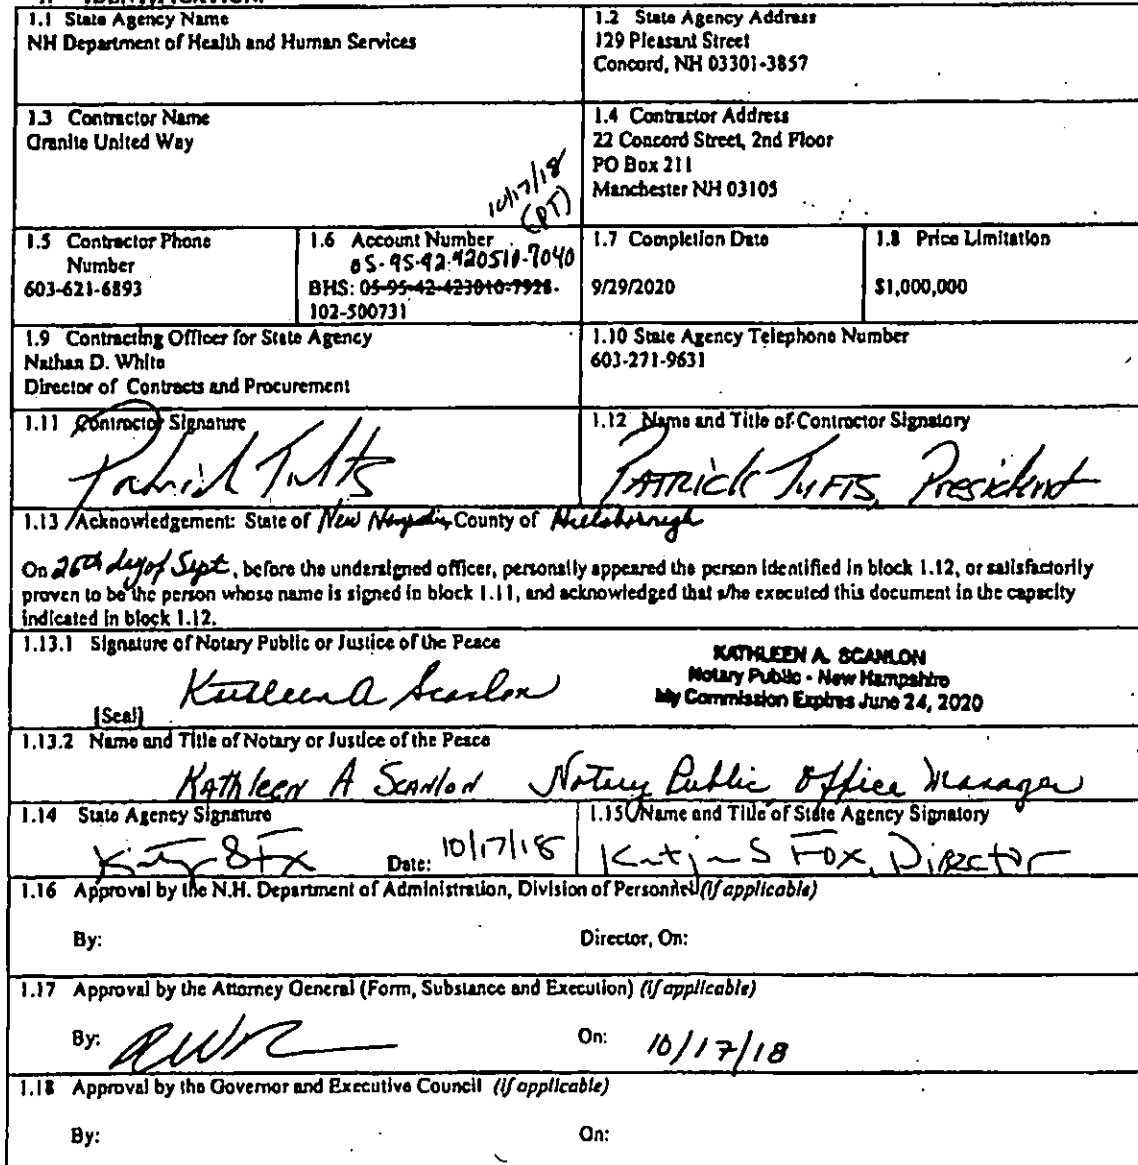 1.1 State Agency Name
NH Department of Health and Human Services
1.2 State Agency Address
129 Pleasant Street
Concord, NH 03301-3857
1.3 Contractor Name
Granite United Way
10/17/18
(PT)
1.4 Contractor Address
22 Concord Street, 2nd Floor
PO Box 211
Manchester NH 03105
1.5 Contractor Phone
Number
603-621-6893
1.6 Account Number
05-95-92-920510-7040
BHS: 05-95-42-423010-7928-
102-500731
1.7 Completion Date
9/29/2020
1.8 Price Limitation
$1,000,000
1.9 Contracting Officer for State Agency
Nathan D. White
Director of Contracts and Procurement
1.10 State Agency Telephone Number
603-271-9631
1.11 Contractor Signature
Patrick Tufts
1.12 Name and Title of Contractor Signatory
PATRICK TUFTS, President
1.13 Acknowledgement: State of New Hampshire, County of Hillsborough
On 26th day of Sept, before the undersigned officer, personally appeared the person identified in block 1.12, or satisfactorily
proven to be the person whose name is signed in block 1.11, and acknowledged that s/he executed this document in the capacity
indicated in block 1.12.
1.13.1 Signature of Notary Public or Justice of the Peace
Kathleen A Scanlon
[Seal]
KATHLEEN A. SCANLON
Notary Public - New Hampshire
My Commission Expires June 24, 2020
1.13.2 Name and Title of Notary or Justice of the Peace
Kathleen A Scanlon Notary Public Office Manager
1.14 State Agency Signature
Date: 10/17/18
1.15 Name and Title of State Agency Signatory
Katja S Fox, Director
1.16 Approval by the N.H. Department of Administration, Division of Personnel (if applicable)
By: Director, On:
1.17 Approval by the Attorney General (Form, Substance and Execution) (if applicable)
By: On: 10/17/18
1.18 Approval by the Governor and Executive Council (if applicable)
By: On: